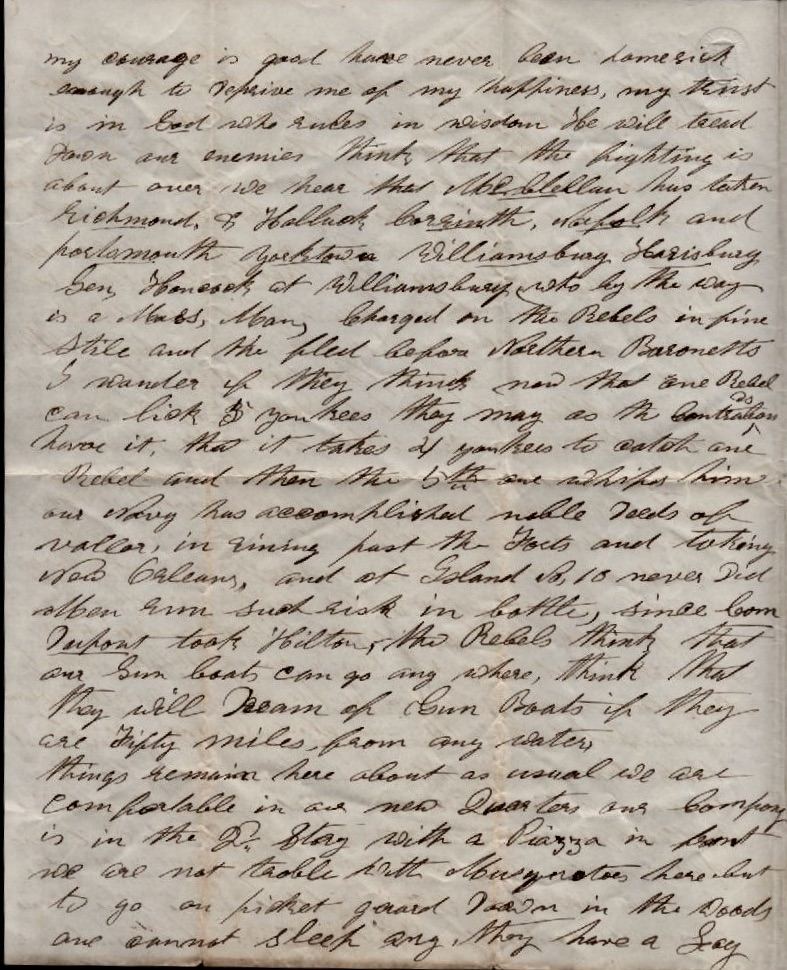 my courage is good have never been homesick
enough to deprive me of my happiness, my trust
is in God who rules in wisdom He will tread
down our enemies think that the fighting is
about over we hear that McClellan has taken
Richmond, & Halluck Corrinth, Norfolk and
portsmouth yorktown Williamsburg Harisburg
Gen, Hancock at Williamsburg who by the way
is a Mass, Man, Charged on the Rebels in fine
stile and the fled before Northern Baronetts
I wander if they think now that one Rebel
can lick 5 yankees they may as the Contrabands
have it, that it takes 4 yankees to catch one
Rebel and then the 5th one whips him
our Navy has accomplished noble deeds of
vallor, in rining past the Forts and taking
New Orleans, and at Island No, 10 never did
Men run such risk in battle, since Com
Dupont took Hilton, the Rebels think that
our Gun boats can go any where, think that
they will Dream of Gun Boats if they
are Fifty miles from any water,
things remain here about as usual we are
comfortable in our new Quarters our Company
is in the 2d. Story with a Piazza in front
we are not troble with Musquetoes here but
to go on picket guard down in the woods
one cannot sleep any they have a Gay